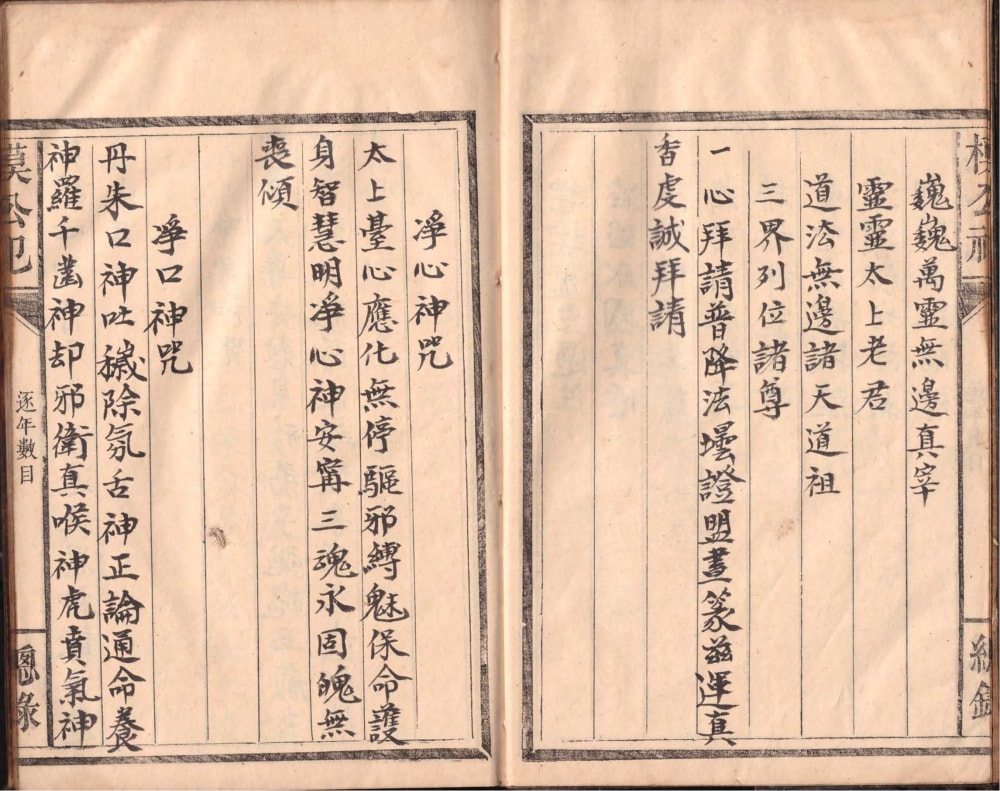 巍巍萬靈無邊真宰
靈靈太上老君
道法無邊諸天道祖
三界列位諸尊
一心拜請普降法壜證盟晝篆茲運真
香虔誠拜請
淨心神咒
太上臺心應化無停驅邪縛魅保命護
身智慧明淨心神安寗三魂永固魄無
喪傾
淨口神咒
丹朱口神吐穢除氛舌神正論通命養
神羅千齒神却邪衛真喉神虎賁氣神
公祀
逐年數目
總錄